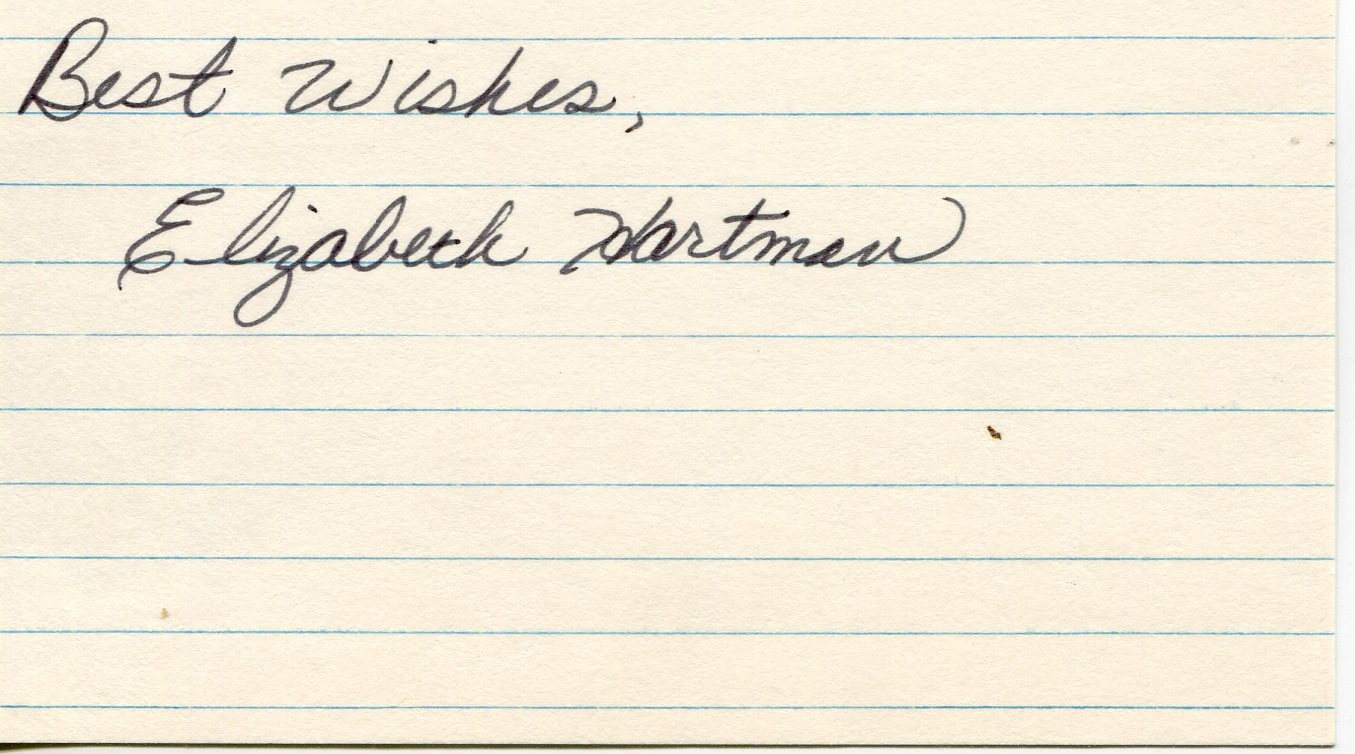 Best Wishes,
Elizabeth Hartman